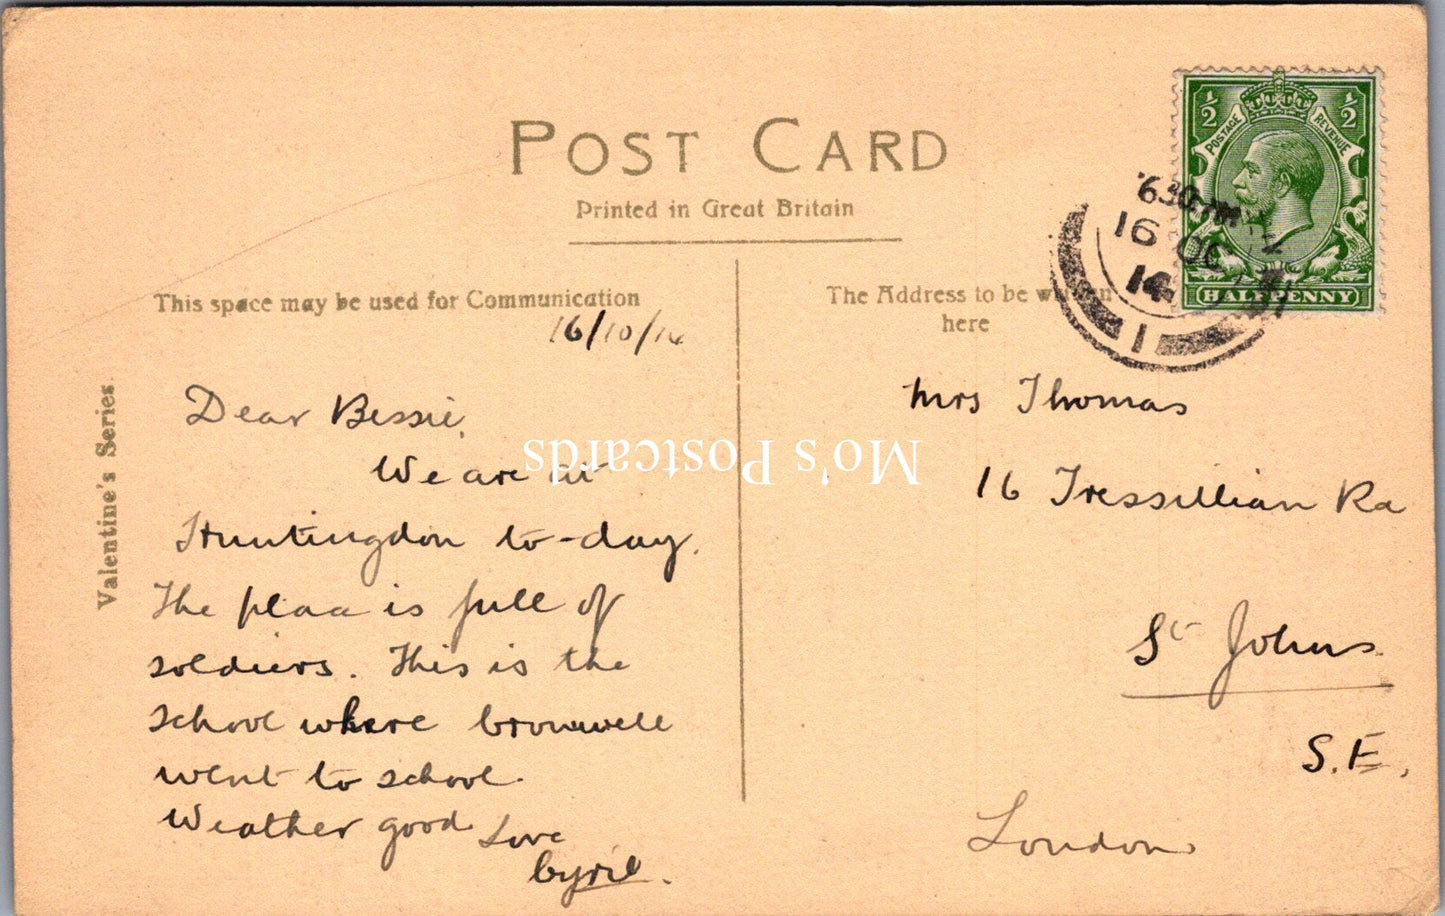 POST CARD
Printed in Great Britain
This space may be used for Communication
16/10/14
Valentine's Series
Dear Bessie,
We are at
Huntingdon to-day.
The place is full of
soldiers. This is the
school where bromwell
went to school.
Weather good Love
Cyril.
The Address to be written
here
Mrs Thomas
16 Tressillian Rd
St Johns
S.E.
London
½ ½
POSTAGE REVENUE
HALFPENNY
6.30 PM
16 OC
14
1
Mo's Postcards